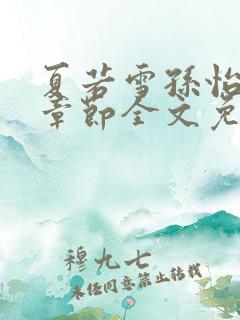 夏若雪孙怡
章节全文免
穆九七
未经同意禁止转载